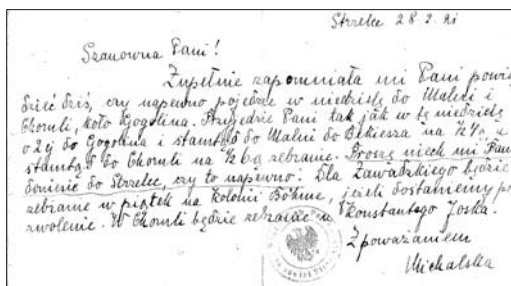 Strzelce 28.2.21
Szanowna Pani!
Zupełnie zapomniała mi Pani powie
dzieć dziś, czy napewno pojedzie w niedzielę do Malni i
Choruli, koło Gogolina. Przyjedzie Pani tak jak w tę niedzielę
o 2j do Gogolina i stamtąd do Malni do Bekiesza na a
stamtąd do Choruli na ½ 6ą zebranie. Proszę niech mi Pani
doniesie do Strzelec, czy to napewno. Dla Zawadzkiego będzie
zebranie w piątek na Kolonii Böhme, jeżeli dostaniemy po
zwolenie. W Choruli będzie zebranie u Konstantego Joska.
Z poważaniem
Michalska